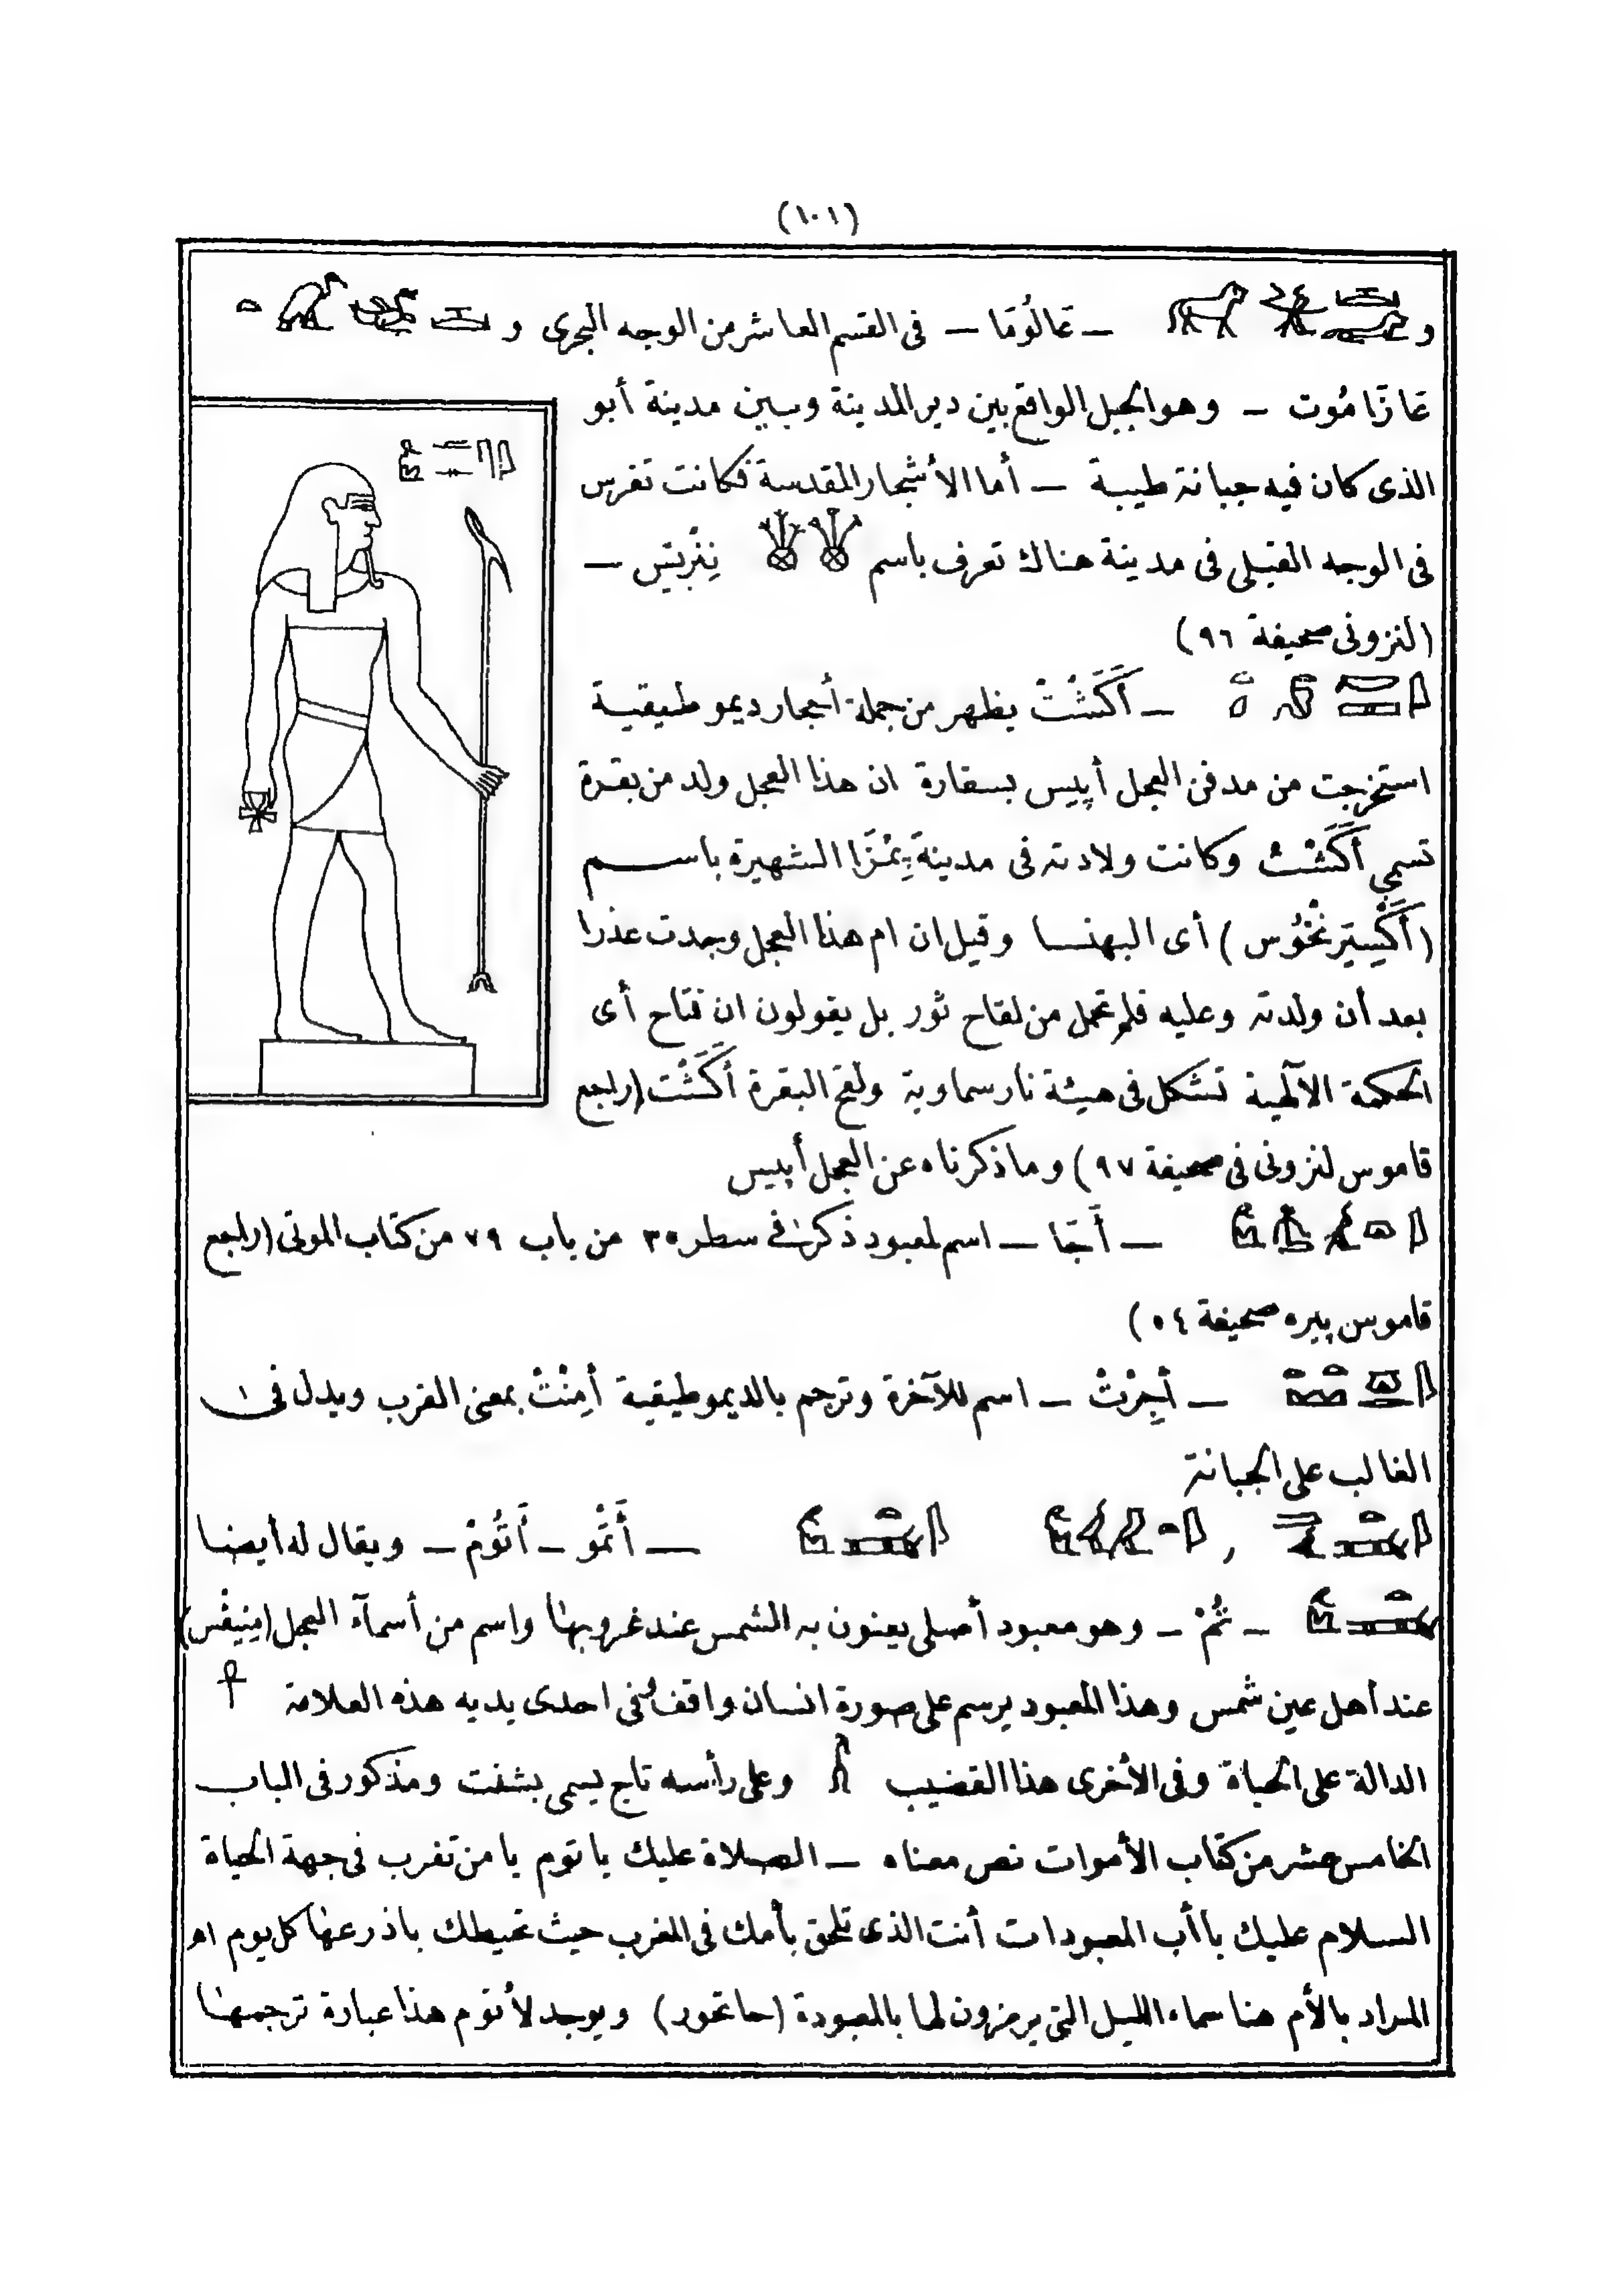 (١٠١)
و — عالُومَا — فى القسم العاشر من الوجه البحرى و
عا رَامُوت — وهو الجبل الواقع بين دير المدينة وبين مدينة أبو
الذى كان فيه جبانة طيبة — أما الأشجار المقدسة فكانت تغرس
فى الوجه القبلى فى مدينة هناك تعرف باسم —
(لنزونى صحيفة ٩٦)
— أَكَشْتْ يظهر من جملة أحجار ديموطيقية
استخرجت من مدفن العجل أپيس بسقارة ان هذا العجل ولد من بقرة
تسمى أَكَشْتْ وكانت ولادته فى مدينة الشهيرة باسم
(أُكْسِيَرِنْخُوُس) أى البهنسا وقيل ان ام هذا العجل وجدت عذرا
بعد أن ولدته وعليه فلم تحمل من لقاح ثور بل يقولون ان فتاح أى
الحكمة الآلهية تشكل فى هيئة نار سماوية ولقح البقرة أَكَشْت (راجع
قاموس لنزونى فى صحيفة ٩٧) وما ذكرناه عن العجل أپيس
— أَجَا — اسم لمعبود ذكر فى سطر ٣٥ من باب ٧٩ من كتاب الموتى (راجع
قاموس پيره صحيفة ٥٤)
— أَجِرْتْ — اسم للآخرة وترجم بالديموطيقية أمِنْتْ بمعنى الغرب ويدل فى
الغالب على الجبانة
, — أَتْمُو — أَتُومْ — ويقال له أيضا
— تُمْ — وهو معبود أصلى يعنون به الشمس عند غروبها واسم من أسمآء العجل (مِنِيڤْس)
عند أهل عين شمس وهذا المعبود يرسم على صورة انسان واقف فى احدى يديه هذه العلامة ☥
الدالة على الحياة وفى الأخرى هذا القضيب وعلى رأسه تاج يسمى بشنت ومذكور فى الباب
الخامس عشر من كتاب الأموات نص معناه — الصلاة عليك يا توم يا من تغرب فى جهة الحياة
السلام عليك يا أب المعبودات أنت الذى تلحق بأمك فى المغرب حيث تحيطك باذرعها كل يوم اه
المراد بالأم هنا سماء الليل التى يرمزون لها بالمعبودة (حاتحور) ويوجد لأتوم هذا عبارة ترجمتها